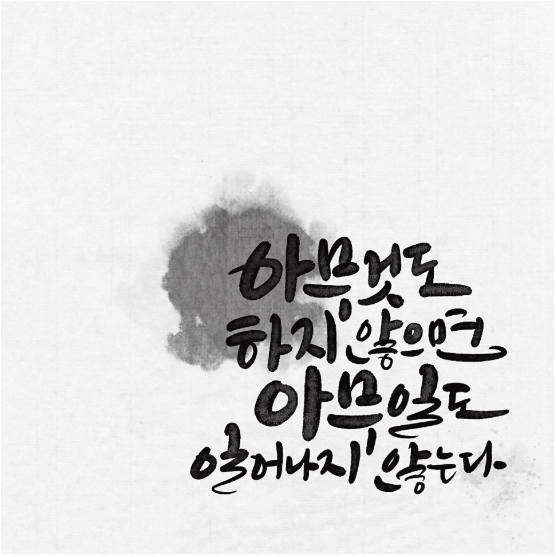 아무것도
하지 않으면
아무일도
일어나지 않는다.